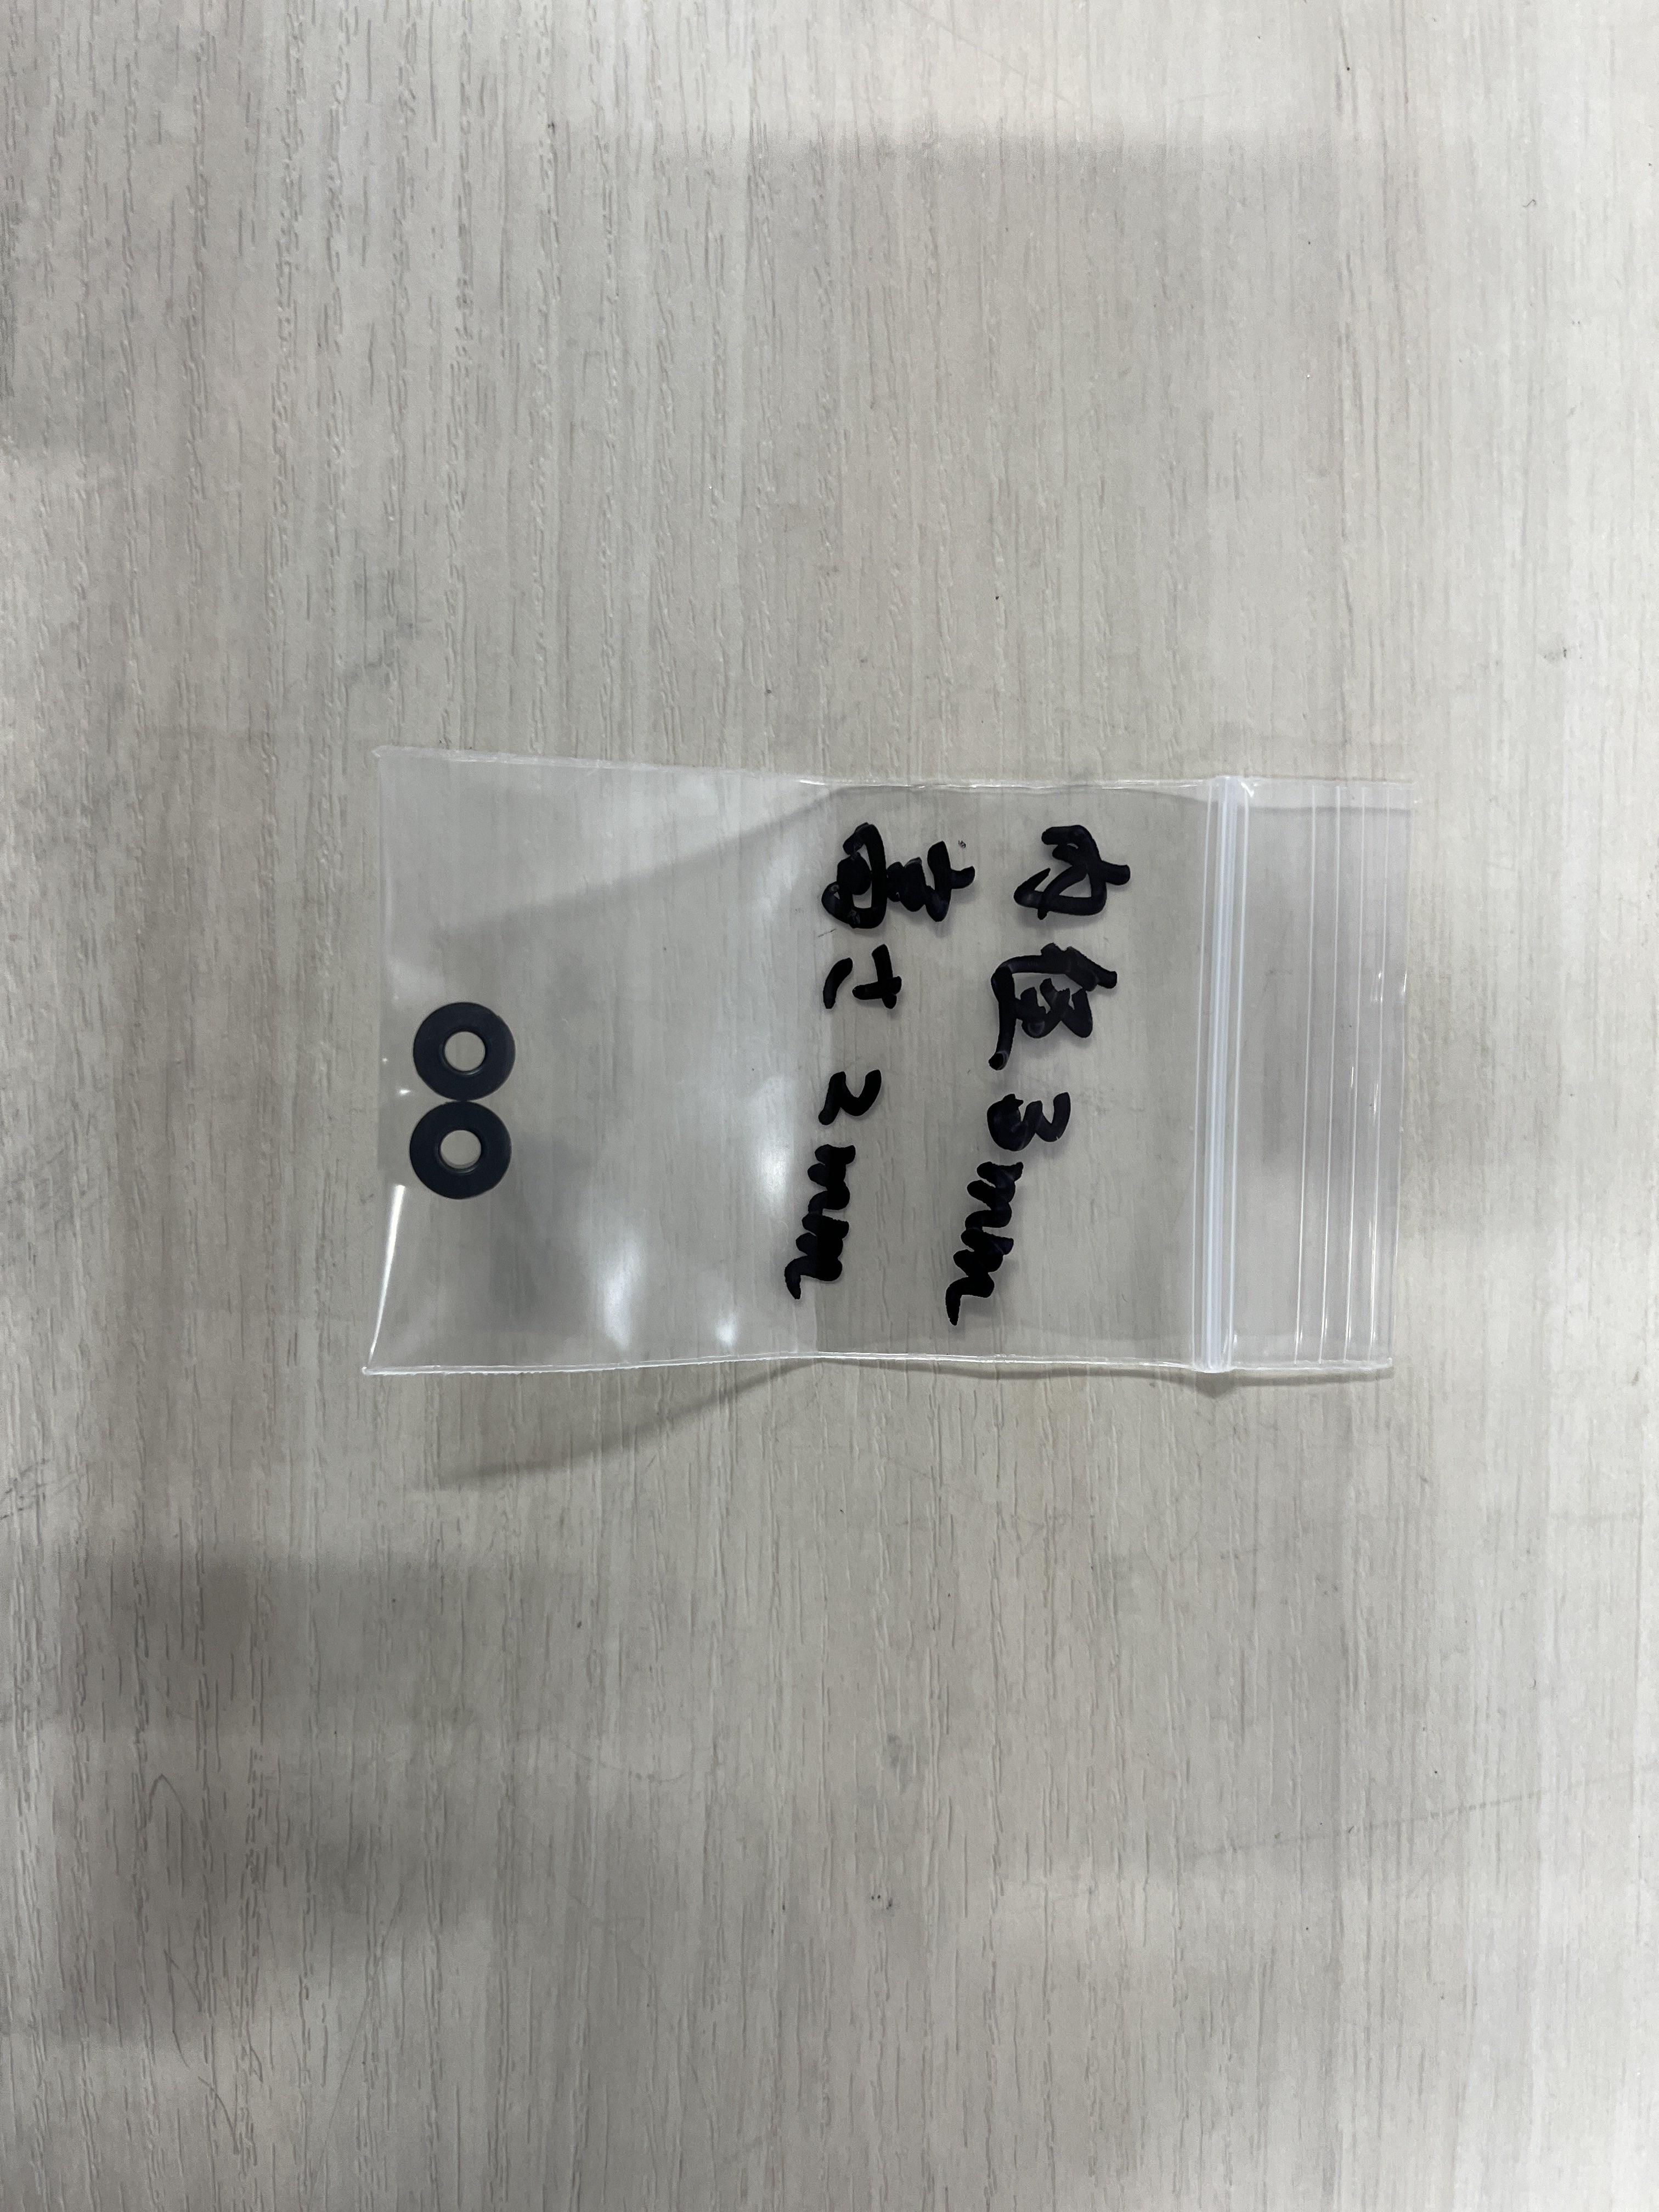 内径3mm
高さ2mm